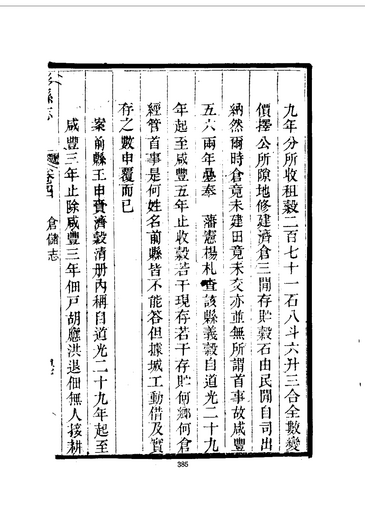 九年分所收租穀二百七十一石八斗六升三合全數變
價擇公所隙地修建濟倉三間存貯穀石由民間自司出
納然爾時倉竟未建田竟未交亦並無所謂首事故咸豐
五六兩年疊奉　藩憲楊札查該縣義穀自道光二十九
年起至咸豐五年止收穀若干現存若干存貯何鄉何倉
經管首事是何姓名前縣皆不能答但據城工動借及實
存之數申覆而已
案前縣王申賚濟穀清册內稱自道光二十九年起至
咸豐三年止除咸豐三年佃戶胡應洪退佃無人接耕
縣志
卷四
倉儲志
385